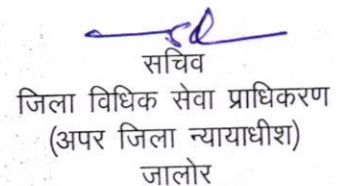 सचिव
जिला विधिक सेवा प्राधिकरण
(अपर जिला न्यायाधीश)
जालोर